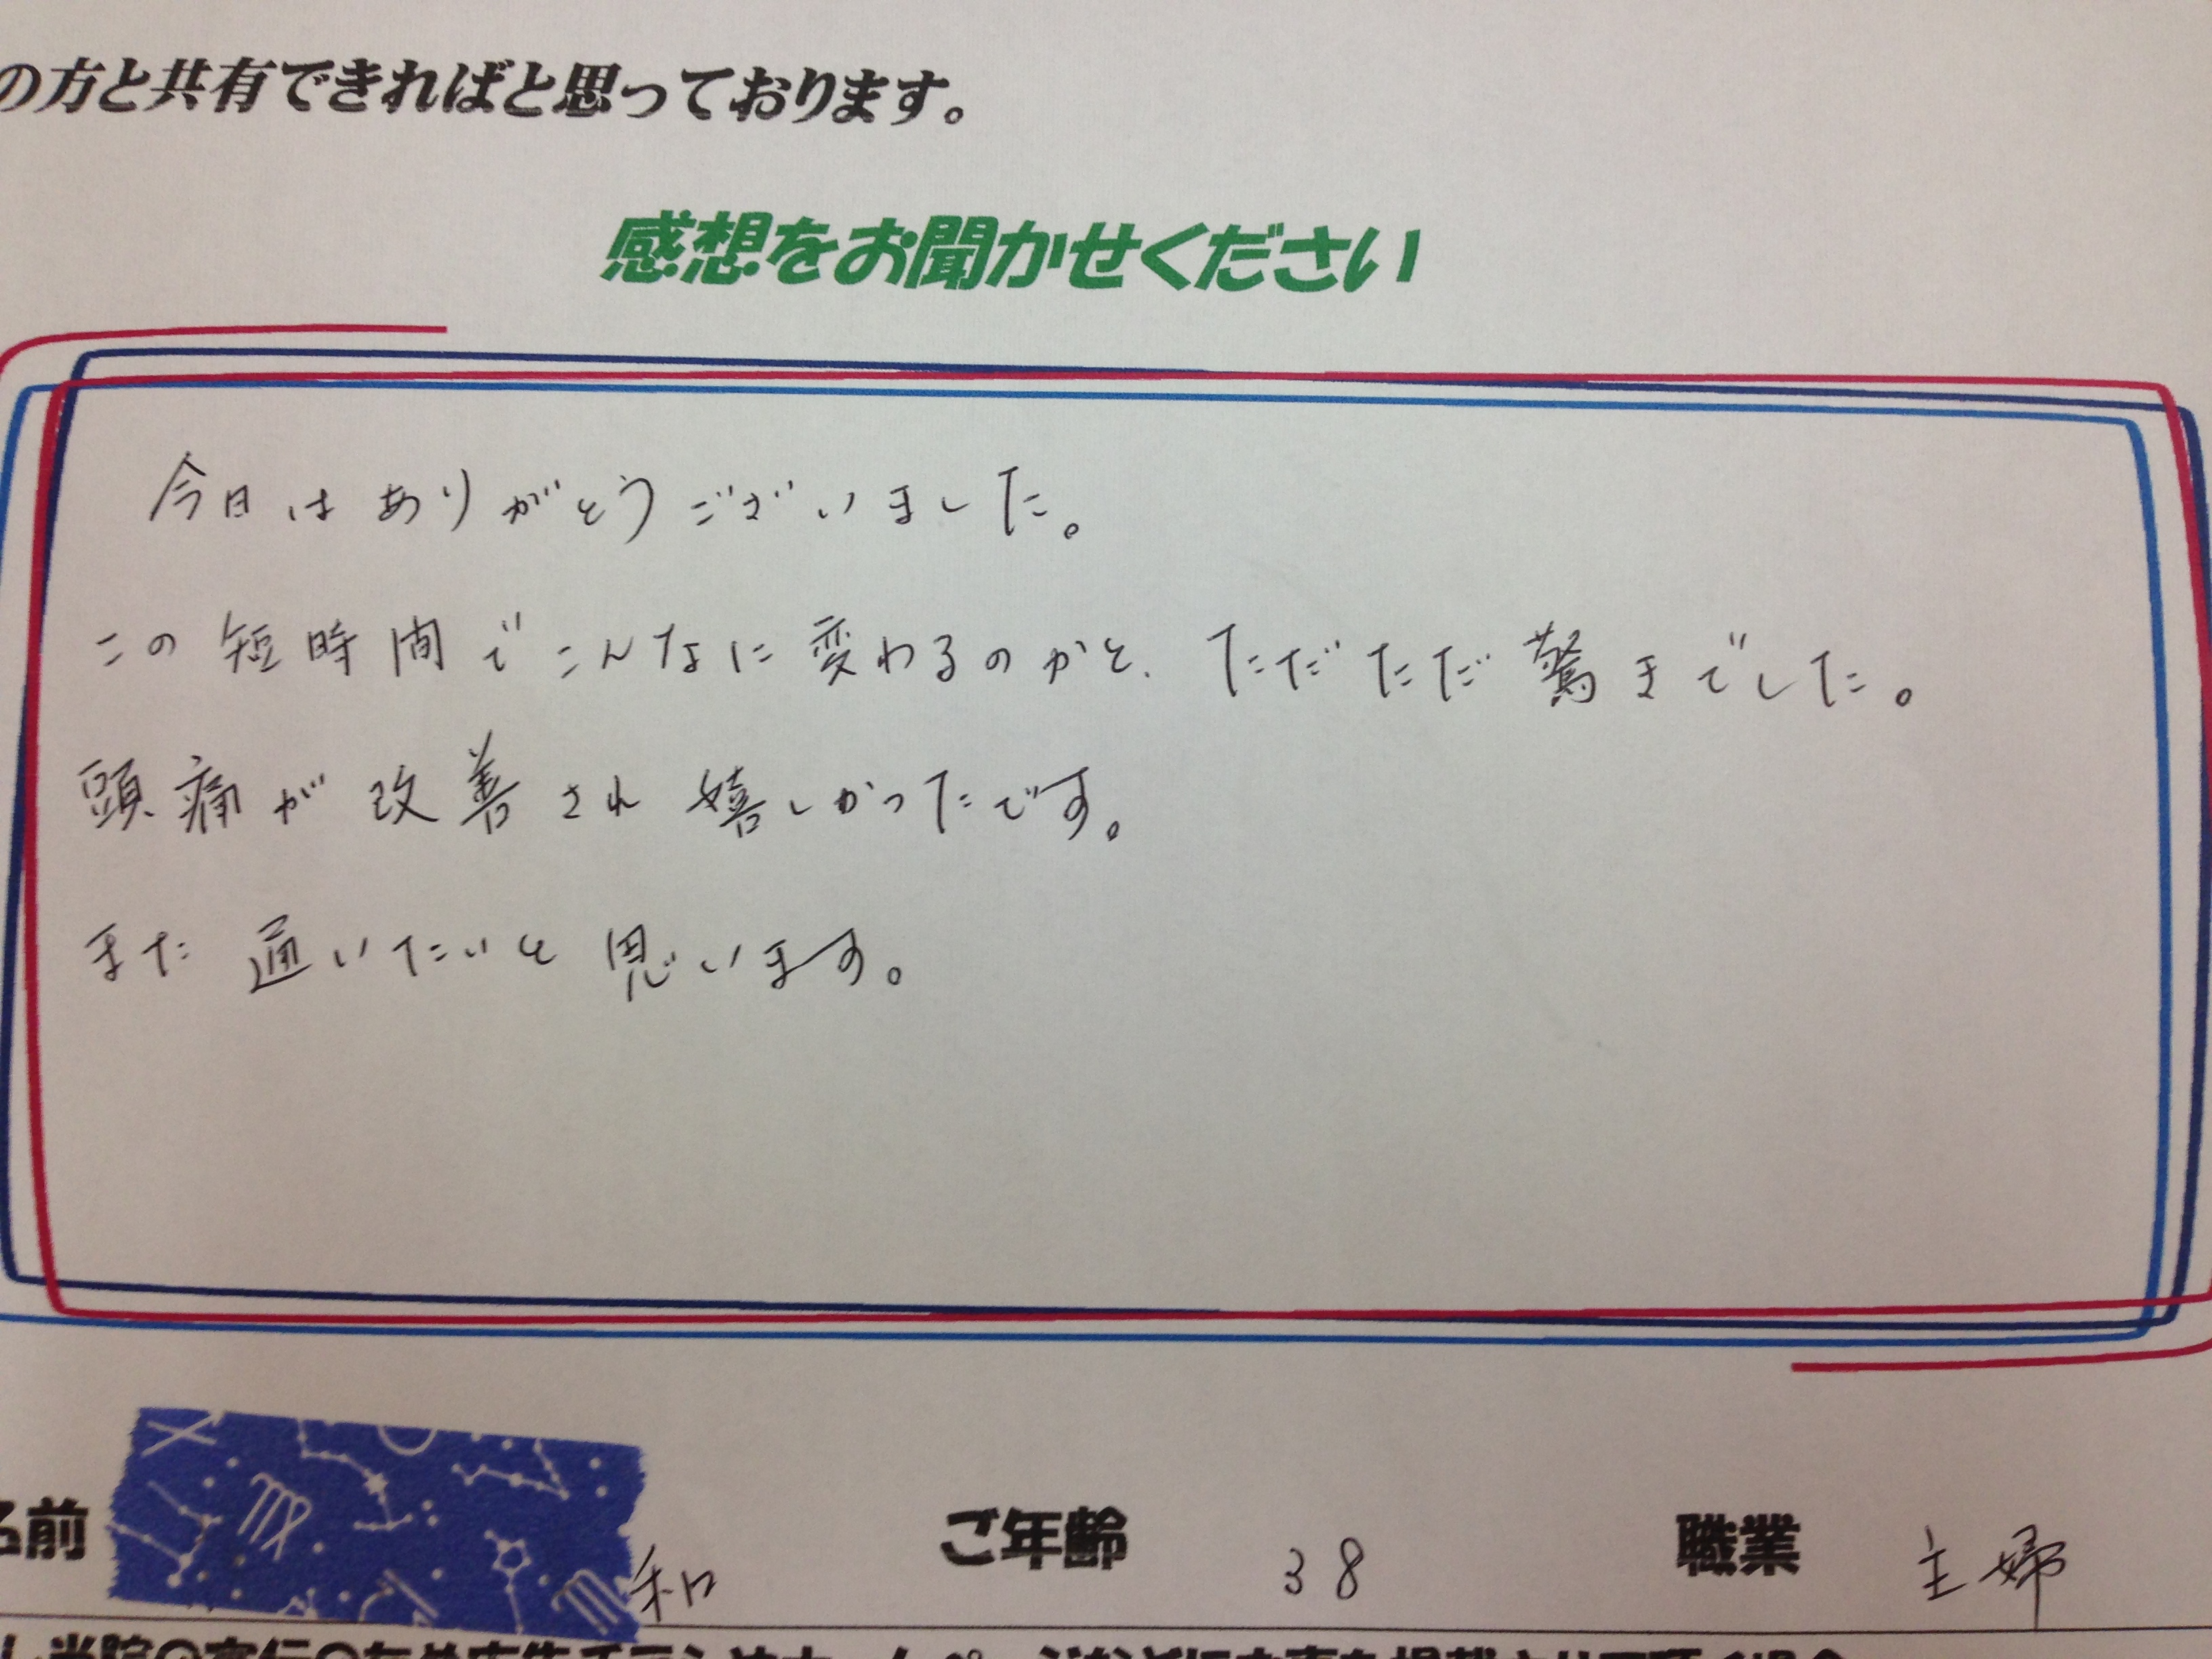 の方と共有できればと思っております。
感想をお聞かせください
今日はありがとうございました。
この短時間でこんなに変わるのかと、ただただ驚きでした。
頭痛が改善され嬉しかったです。
また通いたいと思います。
名前 和 ご年齢 38 職業 主婦